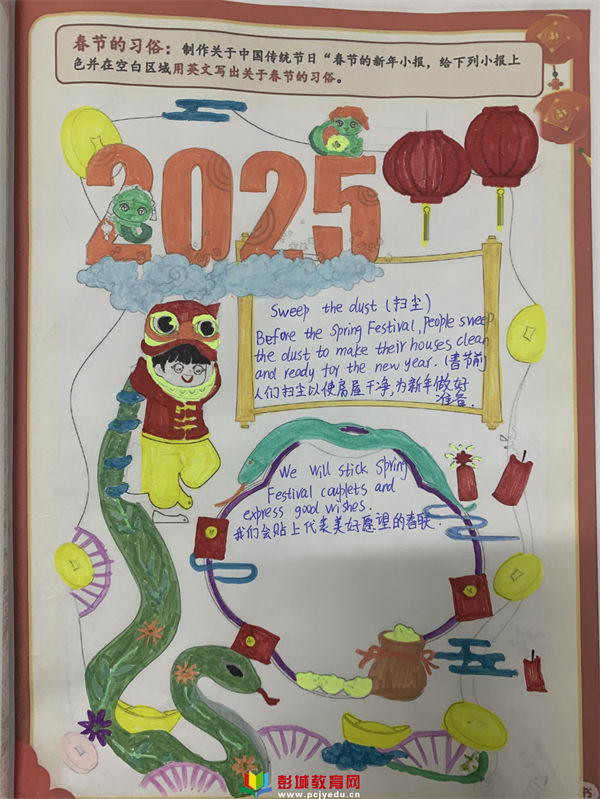 春节的习俗：制作关于中国传统节日“春节的新年小报，给下列小报上
色并在空白区域用英文写出关于春节的习俗。
2025
Sweep the dust (扫尘)
Before the Spring Festival, People sweep
the dust to make their houses clean
and ready for the new year. (春节前
人们扫尘以使房屋干净,为新年做好
准备.
We will stick Spring
Festival couplets and
express good wishes.
我们会贴上代表美好愿望的春联.
彭城教育网
www.pcjyedu.cn